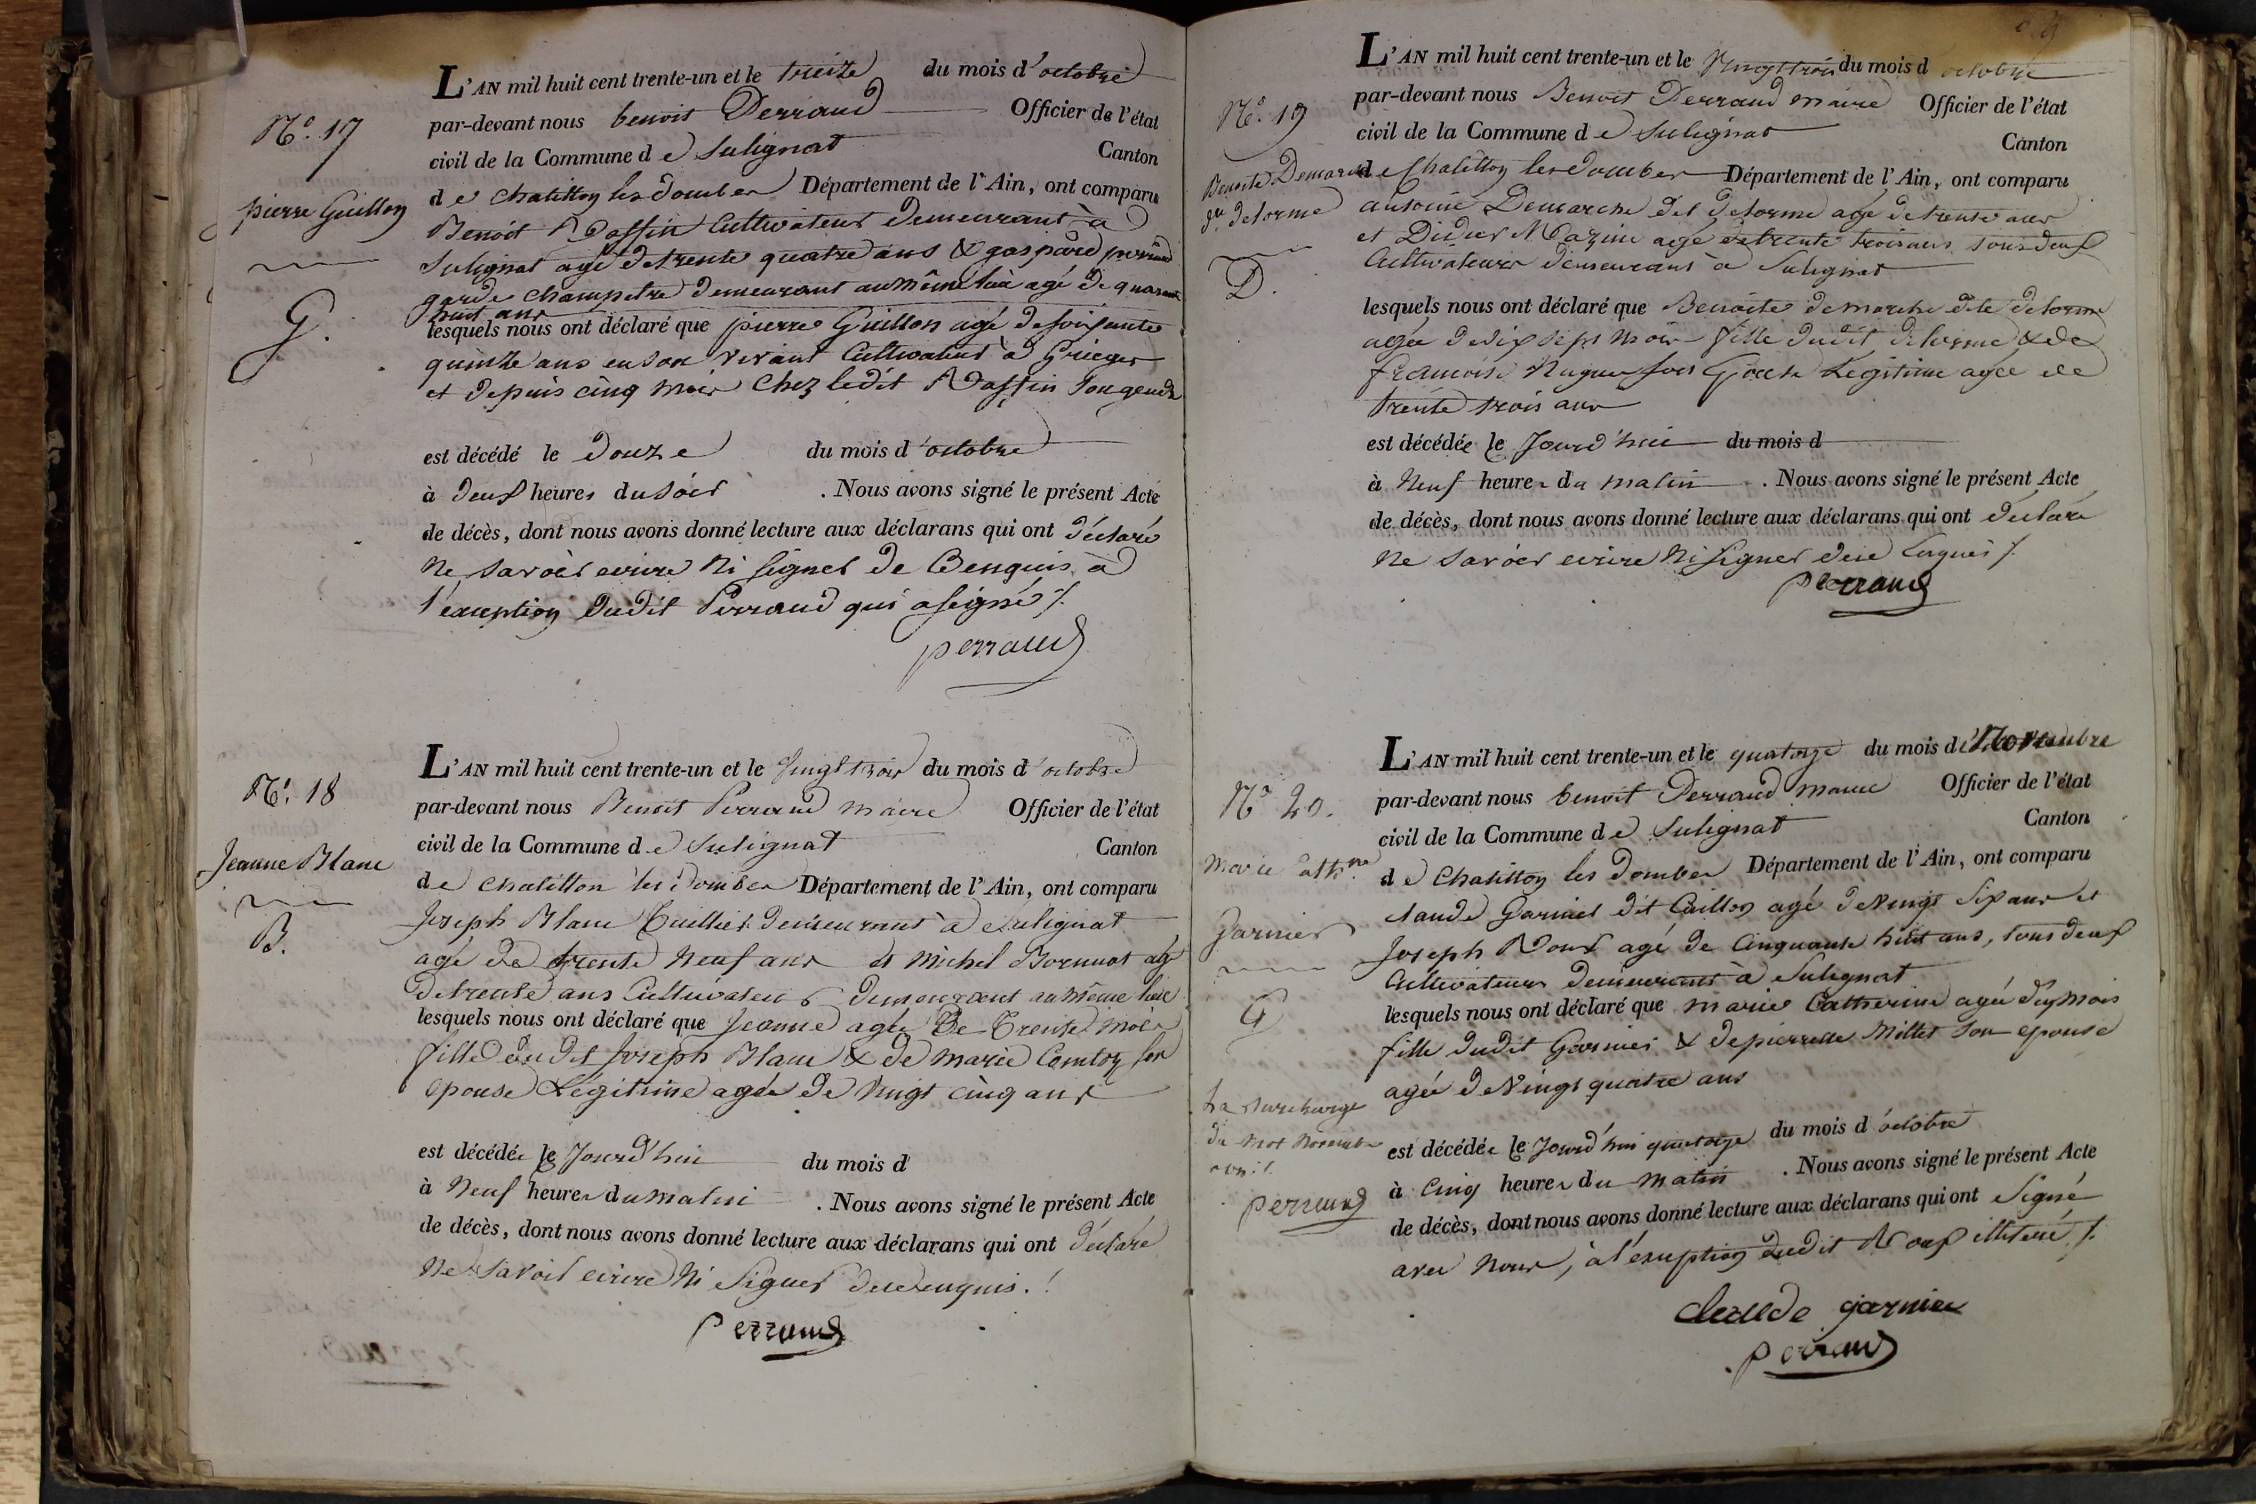 N.° 17
pierre Guillon
G.
L'AN mil huit cent trente-un et le treize du mois d'octobre
par-devant nous benoit Perraud Officier de l'état
civil de la Commune de Sulignat Canton
de Chatillon les dombes Département de l'Ain, ont comparu
Benoit Cultivateur demeurant à
Sulignat agé de trente quatre ans & gaspard perraud
garde champetre demeurant au même lieu agé de quarante
huit ans
lesquels nous ont déclaré que pierre Guillon agé de soixante
quinze ans en son vivant Cultivateur à Grieges
et depuis cinq mois Chez ledit son gendre
est décédé le douze du mois d'octobre
à deux heures du soir . Nous avons signé le présent Acte
de décès, dont nous avons donné lecture aux déclarans qui ont déclaré
Ne savoir ecrire Ni signer de Ce enquis à
l'exception dudit Perraud qui a signé ./.
perraud
N.° 18
Jeanne Blanc
B.
L'AN mil huit cent trente-un et le vingt trois du mois d'octobre
par-devant nous Benoit Perraud maire Officier de l'état
civil de la Commune de Sulignat Canton
de Chatillon les dombes Département de l'Ain, ont comparu
Joseph Blanc demeurant à Sulignat
agé de trente Neuf ans et Michel agé
de trente ans Cultivateur demeurant au même lieu
lesquels nous ont déclaré que Jeanne agée de trente mois
fille du dit Joseph Blanc & de marie son
epouse Légitime agée de vingt cinq ans
est décédée le Jourd'hui du mois d
à Neuf heures du matin . Nous avons signé le présent Acte
de décès, dont nous avons donné lecture aux déclarans qui ont déclaré
Ne savoir ecrire Ni Signer de ce enquis ./.
Perraud
N.° 19
Benoite Demarche
dite delorme
D.
L'AN mil huit cent trente-un et le Vingt trois du mois d octobre
par-devant nous Benoit Perraud maire Officier de l'état
civil de la Commune de Sulignat Canton
de Chatillon les dombes Département de l'Ain, ont comparu
antoine Demarche dit delorme agé de trente ans
et Didier Mazuir agé de trente trois ans tous deux
Cultivateurs demeurant à Sulignat
lesquels nous ont déclaré que Benoite demarche dite delorme
agée de dix sept mois fille dudit delorme & de
francoise son Epouse Légitime agée de
trente trois ans
est décédée le Jourd'hui du mois d
à Neuf heures du matin . Nous avons signé le présent Acte
de décès, dont nous avons donné lecture aux déclarans qui ont déclaré
Ne savoir ecrire Ni signer de ce enquis ./.
perraud
N.° 20.
marie Cath.ne
Garnier
G
La surcharge
du mot Novembre
perraud
L'AN mil huit cent trente-un et le quatorze du mois de Novembre
par-devant nous benoit Perraud maire Officier de l'état
civil de la Commune de Sulignat Canton
de Chatillon les dombes Département de l'Ain, ont comparu
Claude Garnier dit Caillon agé de Vingt six ans et
Joseph Roux agé de Cinquante huit ans, tous deux
Cultivateurs demeurant à Sulignat
lesquels nous ont déclaré que marie Catherine agée mois
fille dudit Garnier & de pierrette Millet son epouse
agée de Vingt quatre ans
est décédée le Jourd'hui quatorze du mois d'octobre
à cinq heures du matin . Nous avons signé le présent Acte
de décès, dont nous avons donné lecture aux déclarans qui ont signé
avec Nous, à l'exception dudit Roux illiteré ./.
Claude garnier
perraud